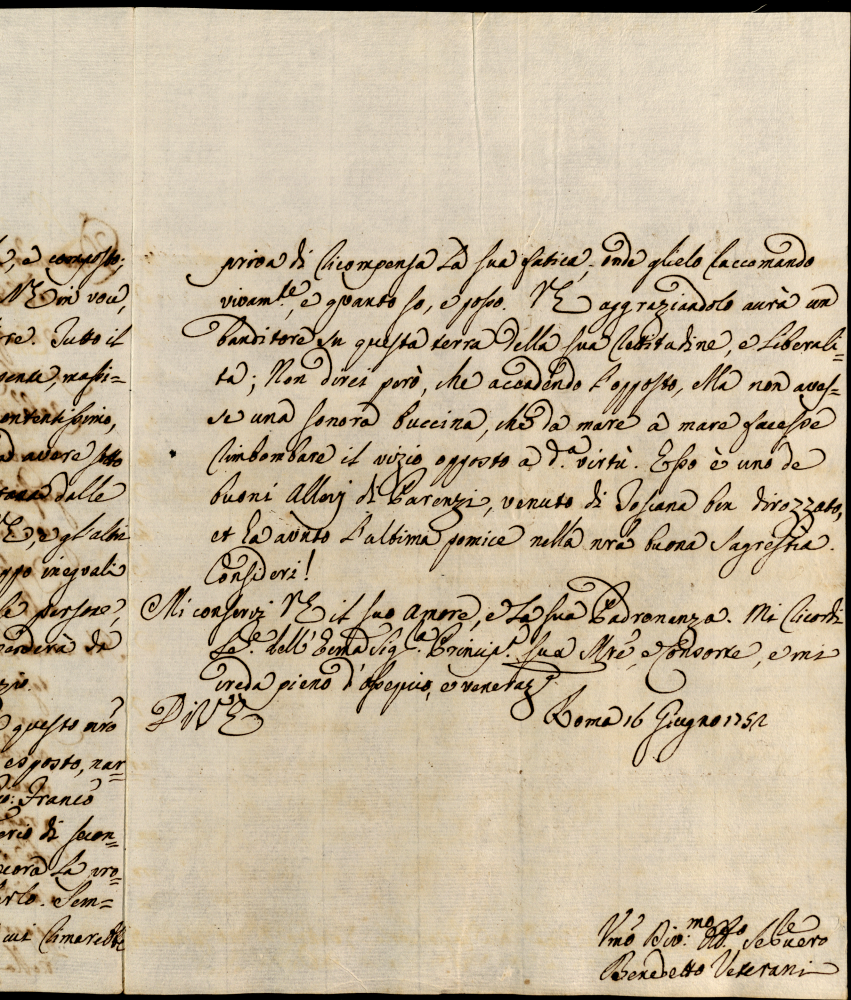 e composto;
VE in voce,
re. Tutto il
mente, massi=
ontentissimo,
avere sotto
dalle
VE, e gl'altri
ppo ineguali
le persone,
perderà di
zio.
questo nrõ
esposto, nar=
Francõ
erio di secon=
cora la pro=
erlo. Sem=
cui rimarebbe
priva di ricompensa la sua fatica, onde glielo raccomando
vivam.te, e quanto so, e posso. VE aggraziandolo aurà un
banditore su questa terra della sua rettitudine, e liberali=
tà; Non direi però, che accadendo l'opposto, Ella non aves=
se una sonora buccina, che da mare a mare facesse
rimbombare il vizio opposto a d.a virtù. Esso è uno de
buoni allevj di Parenzi, venuto di Toscana ben dirozzato,
et ha aùto l'ultima pomice nella nrã buona Sagrestia.
Consideri!
Mi conservi VE il suo amore, e la sua Padronanza. Mi ricordi
Se.e dell'Ecma Sig.a Princip.a sua Mrẽ, e Consorte, e mi
creda pieno d'ossequio, e veneraz.e
Di VE
Roma 16 Giugno 1752
Vmõ Div.mo Obb.mo Se.le vero
Benedetto Veterani